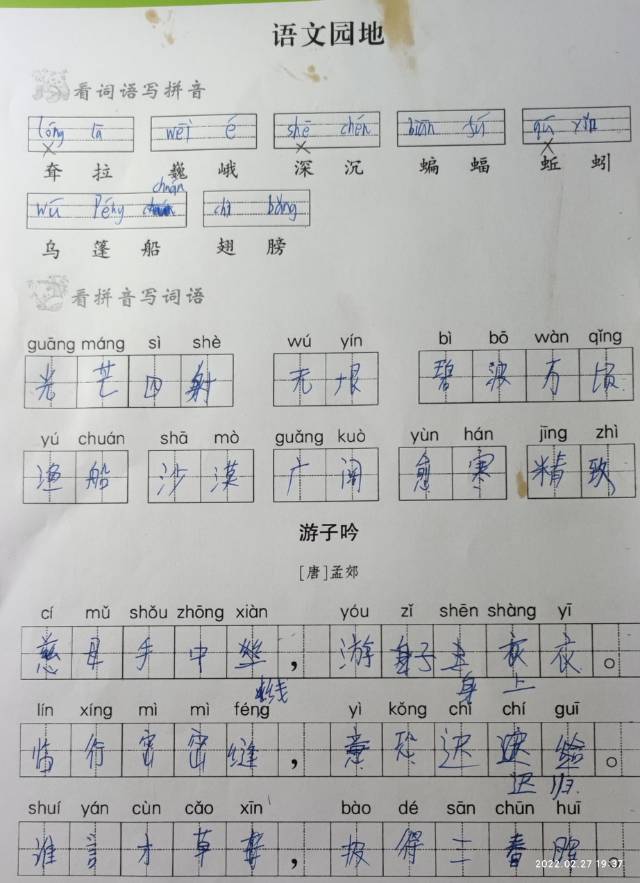 语文园地
看词语写拼音
lóng lā wēi é shē chén biān fú qū yǐn
耷 拉 巍 峨 深 沉 蝙 蝠 蚯 蚓
chuán
wū péng chì bǎng
乌 篷 船 翅 膀
看拼音写词语
guāng máng sì shè wú yín bì bō wàn qǐng
光 芒 四 射 无 垠 碧 波 万 顷
yú chuán shā mò guǎng kuò yùn hán jīng zhì
渔 船 沙 漠 广 阔 寒 精 致
游子吟
[唐]孟郊
cí mǔ shǒu zhōng xiàn yóu zǐ shēn shàng yī
慈 母 手 中 , 游 子 衣 。
线 身 上
lín xíng mì mì féng yì kǒng chí chí guī
临 行 密 密 缝 , 意 恐 迟 。
迟 归
shuí yán cùn cǎo xīn bào dé sān chūn huī
谁 言 寸 草 , 报 得 三 春 晖 。
2022.02.27 19:37